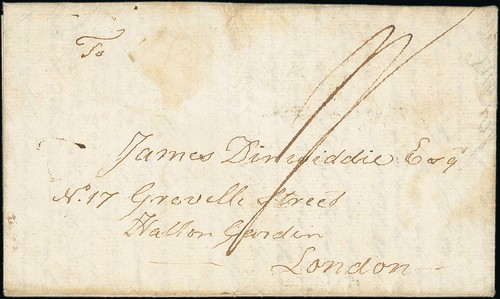 To
James Dinwiddie Esqr
No. 17 Grevelle Street
Hatton Garden
London